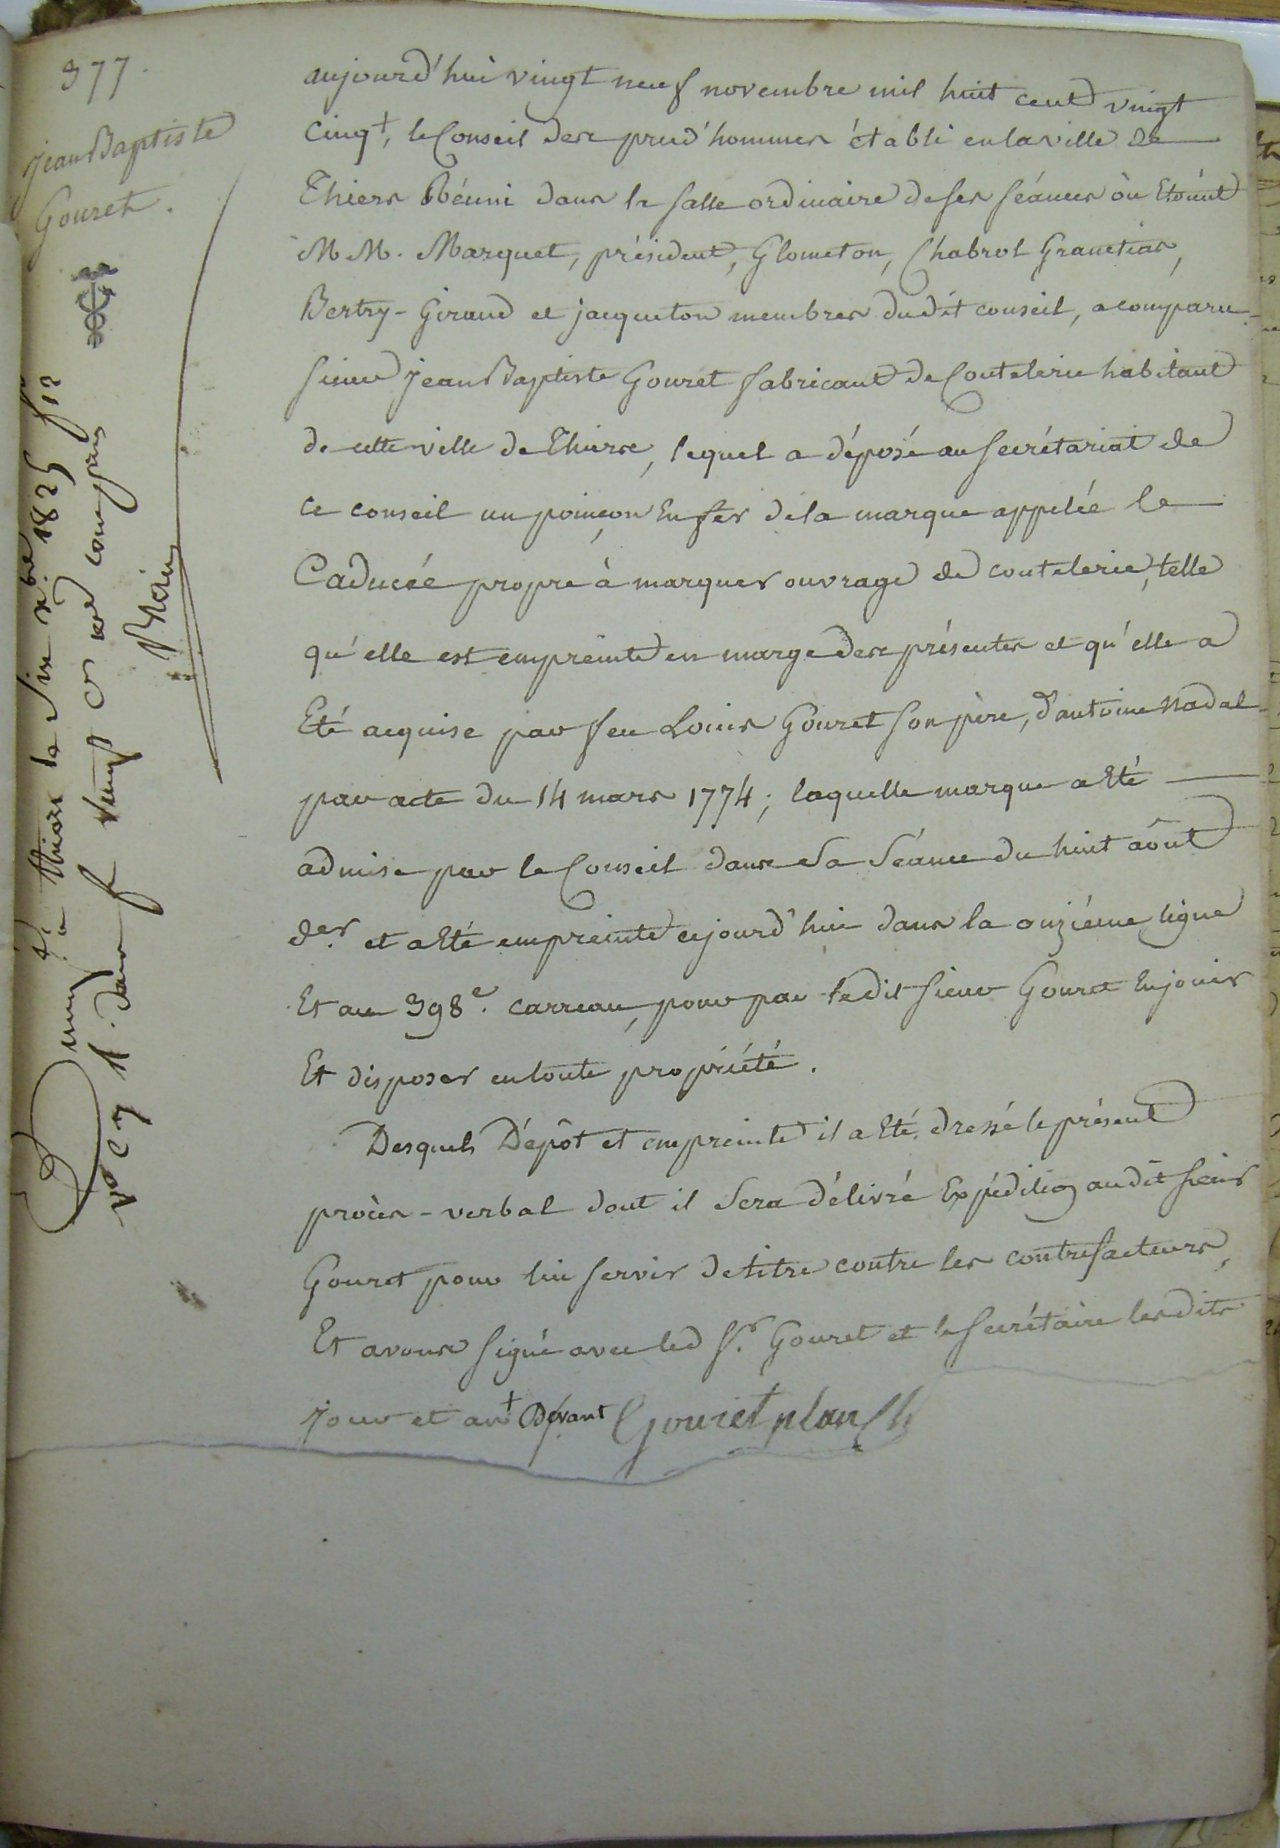 377.
Jean Baptiste
Gouret.
aujourd'hui vingt neuf novembre mil huit cent vingt
cinq, le Conseil des prud'hommes établi en la ville de
Thiers Réuni dans la salle ordinaire de ses séances où Etoient
M M. Marquet, président, Glometon, Chabrol Granetias,
Bertry-Giraud et jacqueton membres dudit conseil, a comparu
sieur Jean Baptiste Gouret fabricant de Coutelerie habitant
de cette ville de Thiers, lequel a déposé au secrétariat de
ce conseil un poinçon En fer de la marque appelée le
Caducée propre à marquer ouvrage de coutelerie, telle
qu'elle est empreinte en marge des présentes et qu'elle a
Eté acquise par feu Louis Gouret son père, d'antoine Nadal
par acte du 14 mars 1774; laquelle marque a Eté
admise par le Conseil dans sa Séance du huit août
der. et a Eté empreinte cejourd'hui dans la onzième ligne
Et au 398e. carreau, pour par ledit sieur Gouret En jouir
Et disposer en toute propriété.
Desquels Dépôt et empreinte il a Eté dressé le présent
procès-verbal dont il Sera délivré Expédition audit sieur
Gouret pour lui servir de titre contre les contrefacteurs,
Et avons signé avec led Sr. Gouret et le secrétaire lesdits
jour et an Gouret
à Thiers le 1825